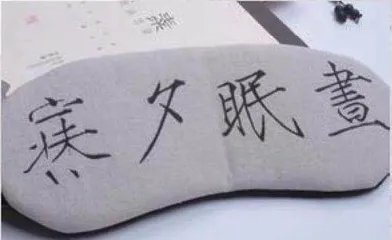 晝眠夕寐